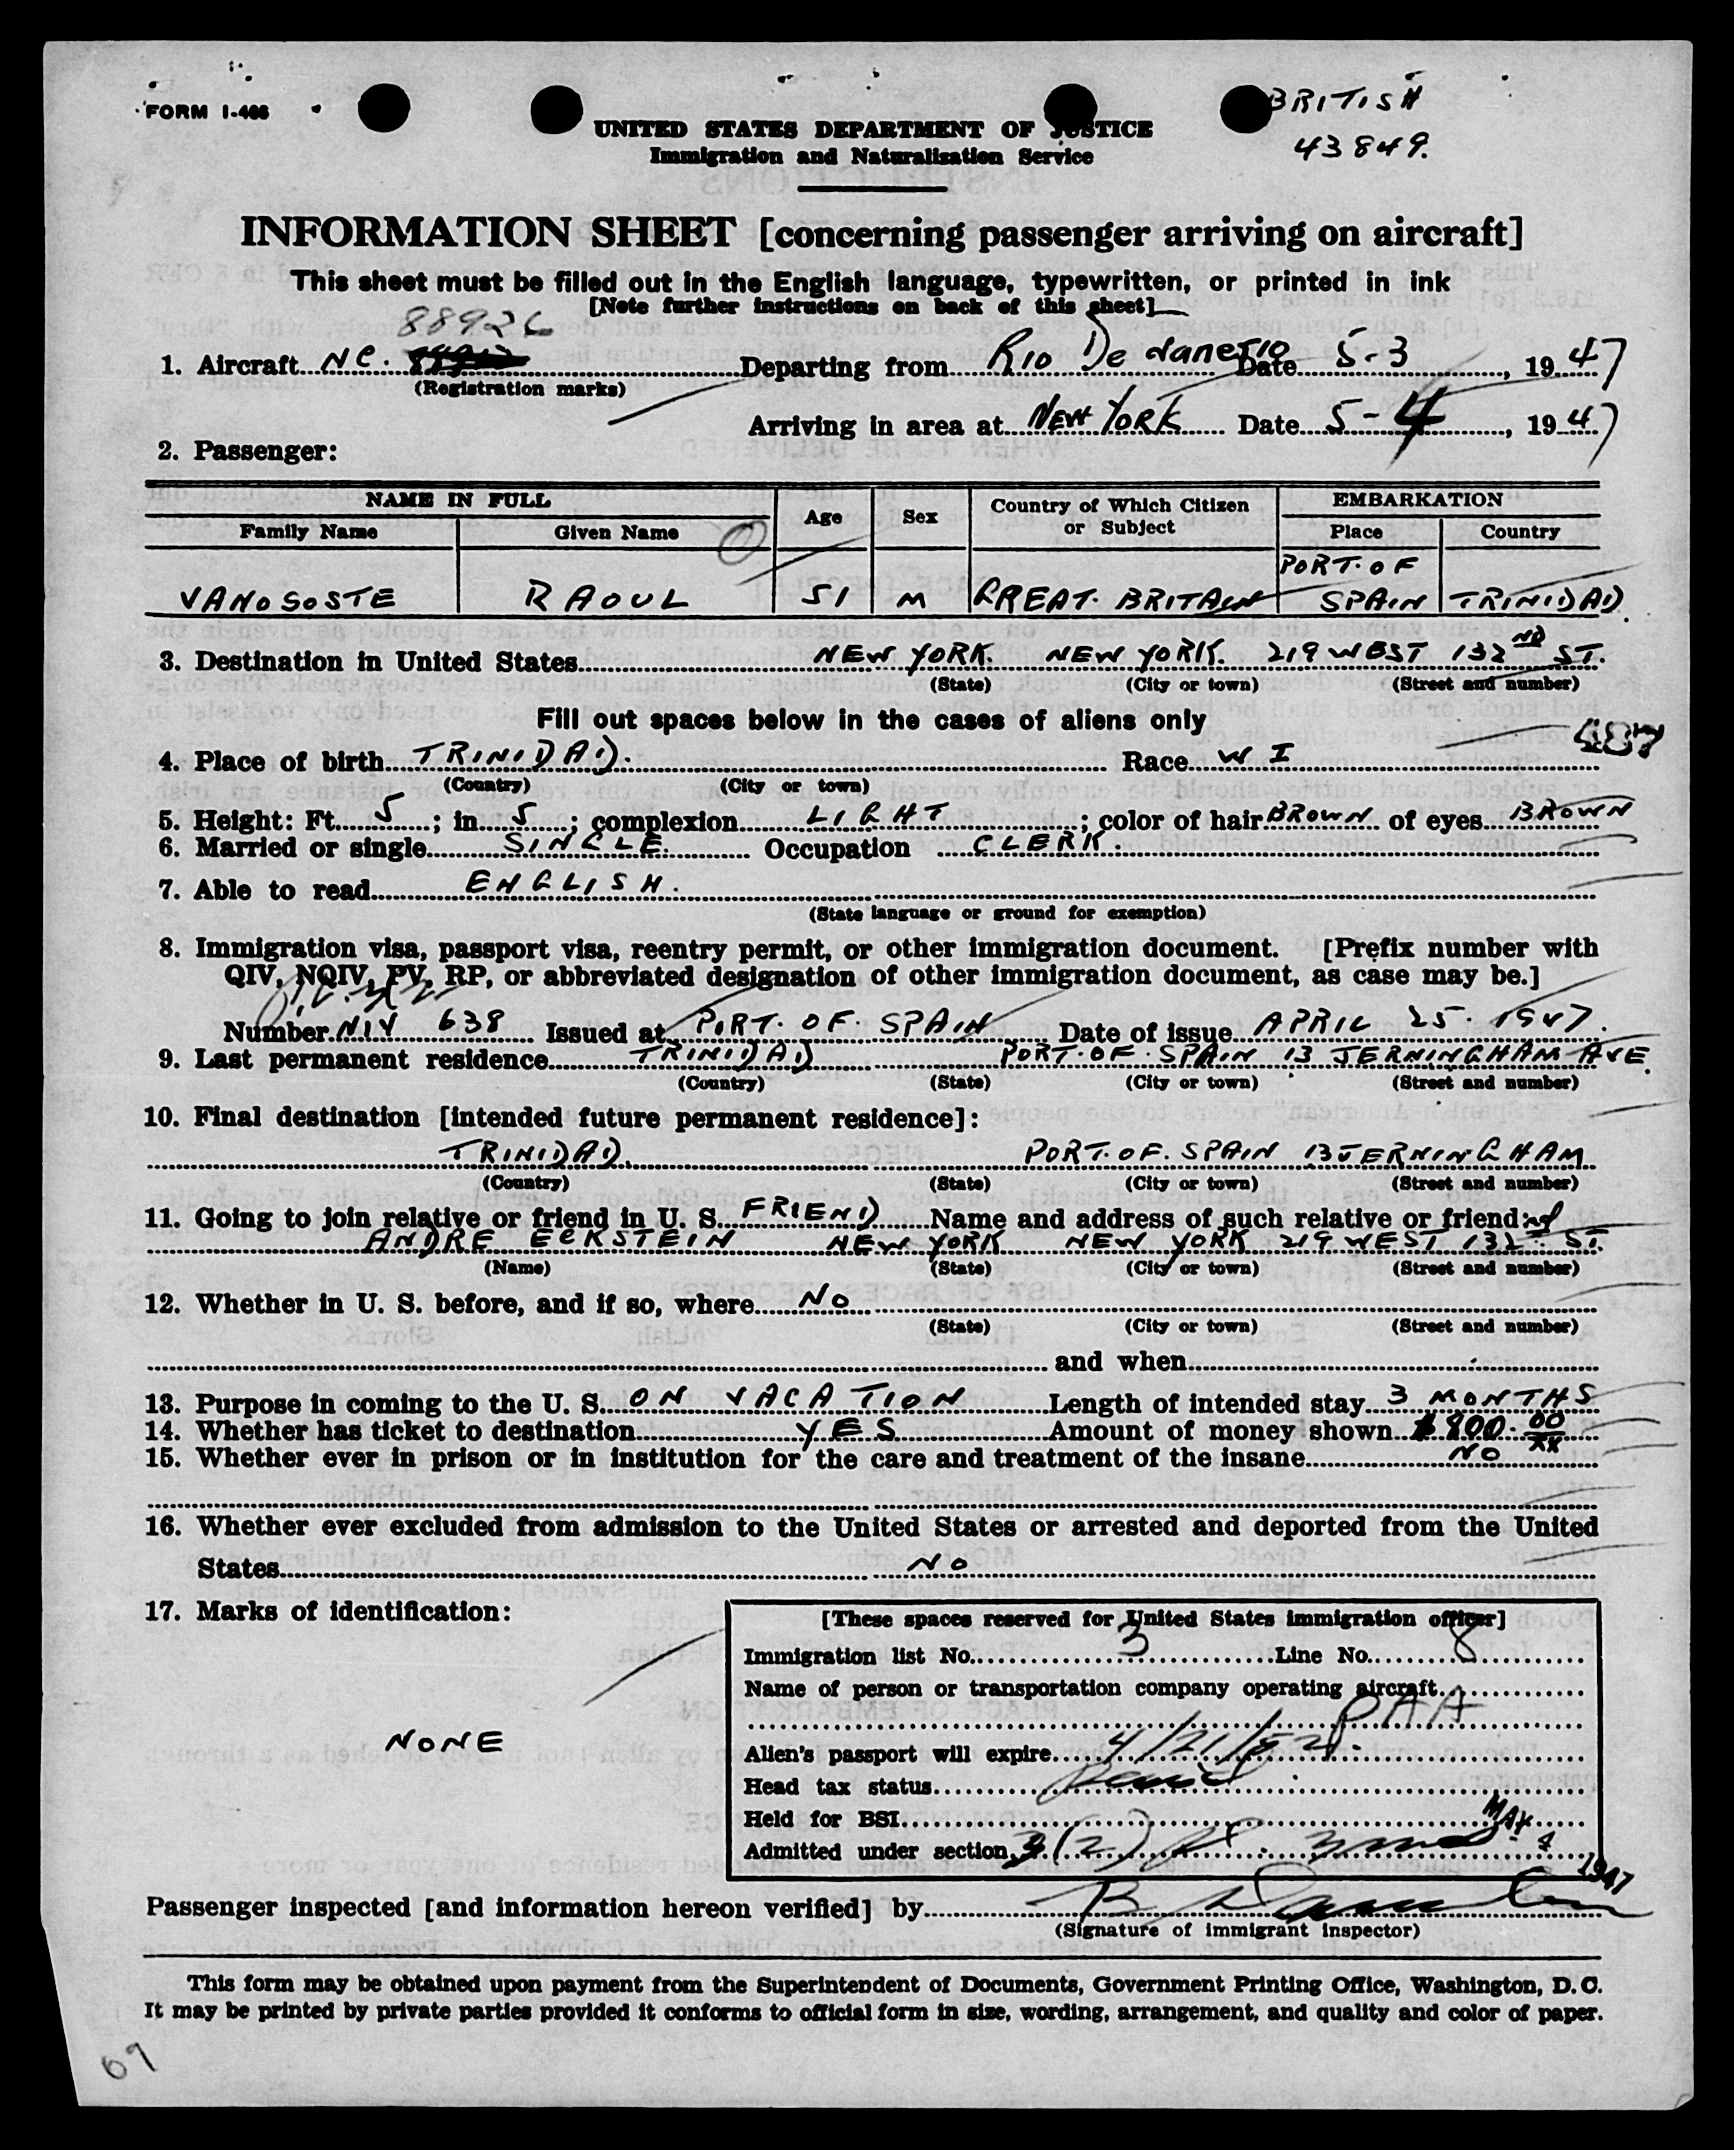 FORM I-466
BRITISH
43849.
UNITED STATES DEPARTMENT OF JUSTICE
Immigration and Naturalization Service
INFORMATION SHEET [concerning passenger arriving on aircraft]
This sheet must be filled out in the English language, typewritten, or printed in ink
[Note further instructions on back of this sheet]
88926
1. Aircraft NC. Departing from RIO De Janerio Date 5-3, 1947
(Registration marks)
Arriving in area at NEW YORK Date 5-4, 1947
2. Passenger:
NAME IN FULL Age Sex Country of Which Citizen or Subject EMBARKATION
Family Name Given Name Place Country
VANOSOSTE RAOUL 51 M GREAT. BRITAIN PORT. OF SPAIN TRINIDAD
3. Destination in United States NEW YORK. NEW YORK. 219 WEST 132ND ST.
(State) (City or town) (Street and number)
Fill out spaces below in the cases of aliens only
4. Place of birth TRINIDAD. Race W I
(Country) (City or town)
5. Height: Ft. 5; in. 5; complexion LIGHT; color of hair BROWN of eyes BROWN
6. Married or single SINGLE. Occupation CLERK.
7. Able to read ENGLISH.
(State language or ground for exemption)
8. Immigration visa, passport visa, reentry permit, or other immigration document. [Prefix number with
QIV, NQIV, PV, RP, or abbreviated designation of other immigration document, as case may be.]
Number NIV 638 Issued at PORT. OF. SPAIN Date of issue APRIL 25. 1947.
9. Last permanent residence TRINIDAD PORT. OF. SPAIN 13 JERNINGHAM AVE.
(Country) (State) (City or town) (Street and number)
10. Final destination [intended future permanent residence]:
TRINIDAD. PORT. OF. SPAIN 13 JERNINGHAM
(Country) (State) (City or town) (Street and number)
11. Going to join relative or friend in U. S. FRIEND Name and address of such relative or friend:
ANDRE ECKSTEIN NEW YORK NEW YORK 219 WEST 132nd ST.
(Name) (State) (City or town) (Street and number)
12. Whether in U. S. before, and if so, where NO
(State) (City or town) (Street and number)
and when
13. Purpose in coming to the U. S. ON VACATION Length of intended stay 3 MONTHS
14. Whether has ticket to destination YES Amount of money shown $800.00/XX
15. Whether ever in prison or in institution for the care and treatment of the insane NO
16. Whether ever excluded from admission to the United States or arrested and deported from the United
States NO
17. Marks of identification:
NONE
[These spaces reserved for United States immigration officer]
Immigration list No. 3 Line No. 8
Name of person or transportation company operating aircraft
PAA
Alien's passport will expire 4/21/52
Head tax status
Held for BSI
Admitted under section 3(2) MAY 4 1947
Passenger inspected [and information hereon verified] by
(Signature of immigrant inspector)
This form may be obtained upon payment from the Superintendent of Documents, Government Printing Office, Washington, D. C.
It may be printed by private parties provided it conforms to official form in size, wording, arrangement, and quality and color of paper.
69